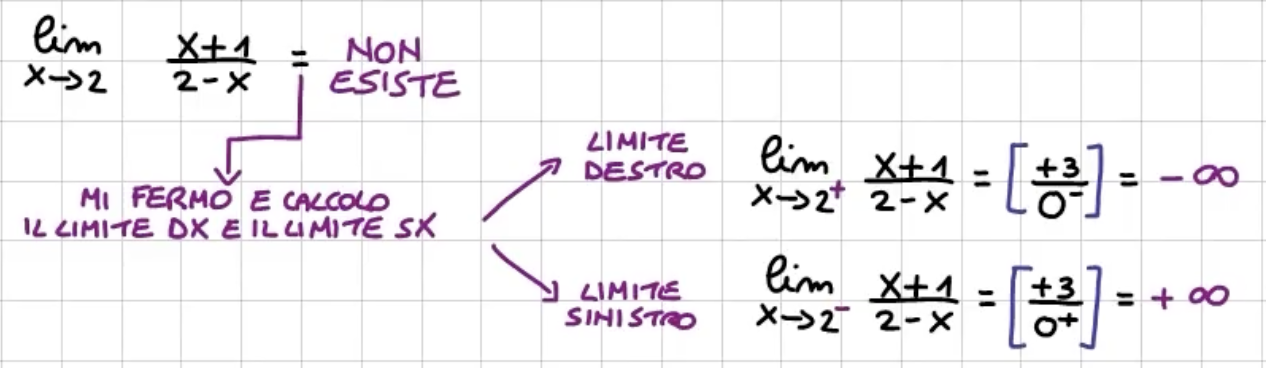 lim x→2 x+1/2-x = NON ESISTE
MI FERMO E CALCOLO
IL LIMITE DX E IL LIMITE SX
LIMITE DESTRO
lim x→2⁺ x+1/2-x = [+3/0⁻] = -∞
LIMITE SINISTRO
lim x→2⁻ x+1/2-x = [+3/0⁺] = +∞